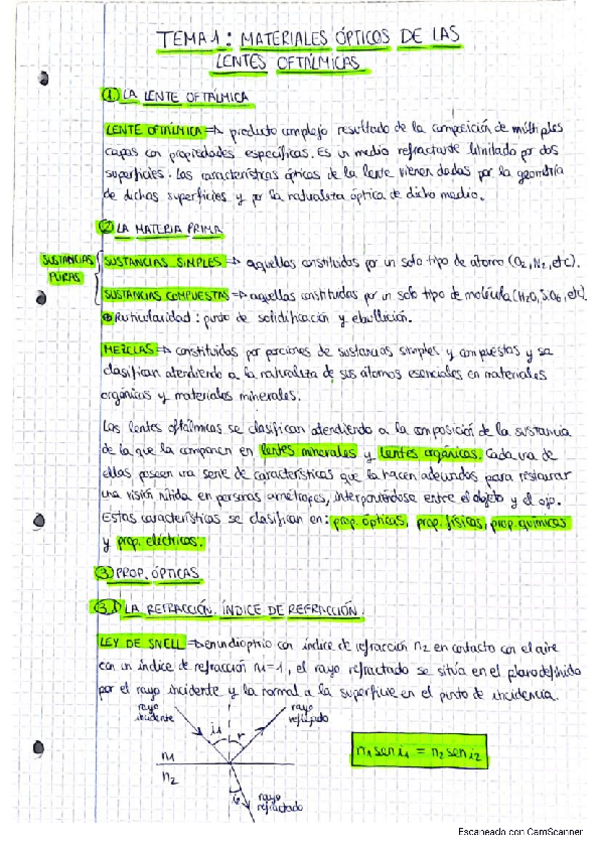 TEMA 1: MATERIALES ÓPTICOS DE LAS
LENTES OFTÁLMICAS
① LA LENTE OFTÁLMICA
LENTE OFTÁLMICA ⇒ producto complejo resultado de la composición de múltiples
capas con propiedades específicas. Es un medio refractante limitado por dos
superficies. Las características ópticas de la lente vienen dadas por la geometría
de dichas superficies y por la naturaleza óptica de dicho medio.
② LA MATERIA PRIMA
SUSTANCIAS PURAS
SUSTANCIAS SIMPLES ⇒ aquellas constituidas por un solo tipo de átomo (O2, N2, etc).
SUSTANCIAS COMPUESTAS ⇒ aquellas constituidas por un solo tipo de molécula (H2O, etc).
punto de solidificación y ebullición.
MEZCLAS ⇒ constituidas por porciones de sustancias simples y compuestas y se
clasifican atendiendo a la naturaleza de sus átomos esenciales en materiales
orgánicos y materiales minerales.
Las lentes oftálmicas se clasifican atendiendo a la composición de la sustancia
de la que la componen en lentes minerales y lentes orgánicas. Cada una de
ellas poseen una serie de características que la hacen adecuados para restaurar
una visión nítida en personas amétropes, interponiéndose entre el objeto y el ojo.
Estas características se clasifican en: prop. ópticas, prop. físicas, prop. químicas
y prop. eléctricas.
③ PROP. ÓPTICAS
3.1 LA REFRACCIÓN. ÍNDICE DE REFRACCIÓN.
LEY DE SNELL ⇒ en un dioptrio con índice de refracción n2 en contacto con el aire
con un índice de refracción n1=1, el rayo refractado se sitúa en el plano definido
por el rayo incidente y la normal a la superficie en el punto de incidencia.
rayo incidente
rayo reflejado
i1
r
n1
n2
i2
rayo refractado
n1 sen i1 = n2 sen i2
Escaneado con CamScanner